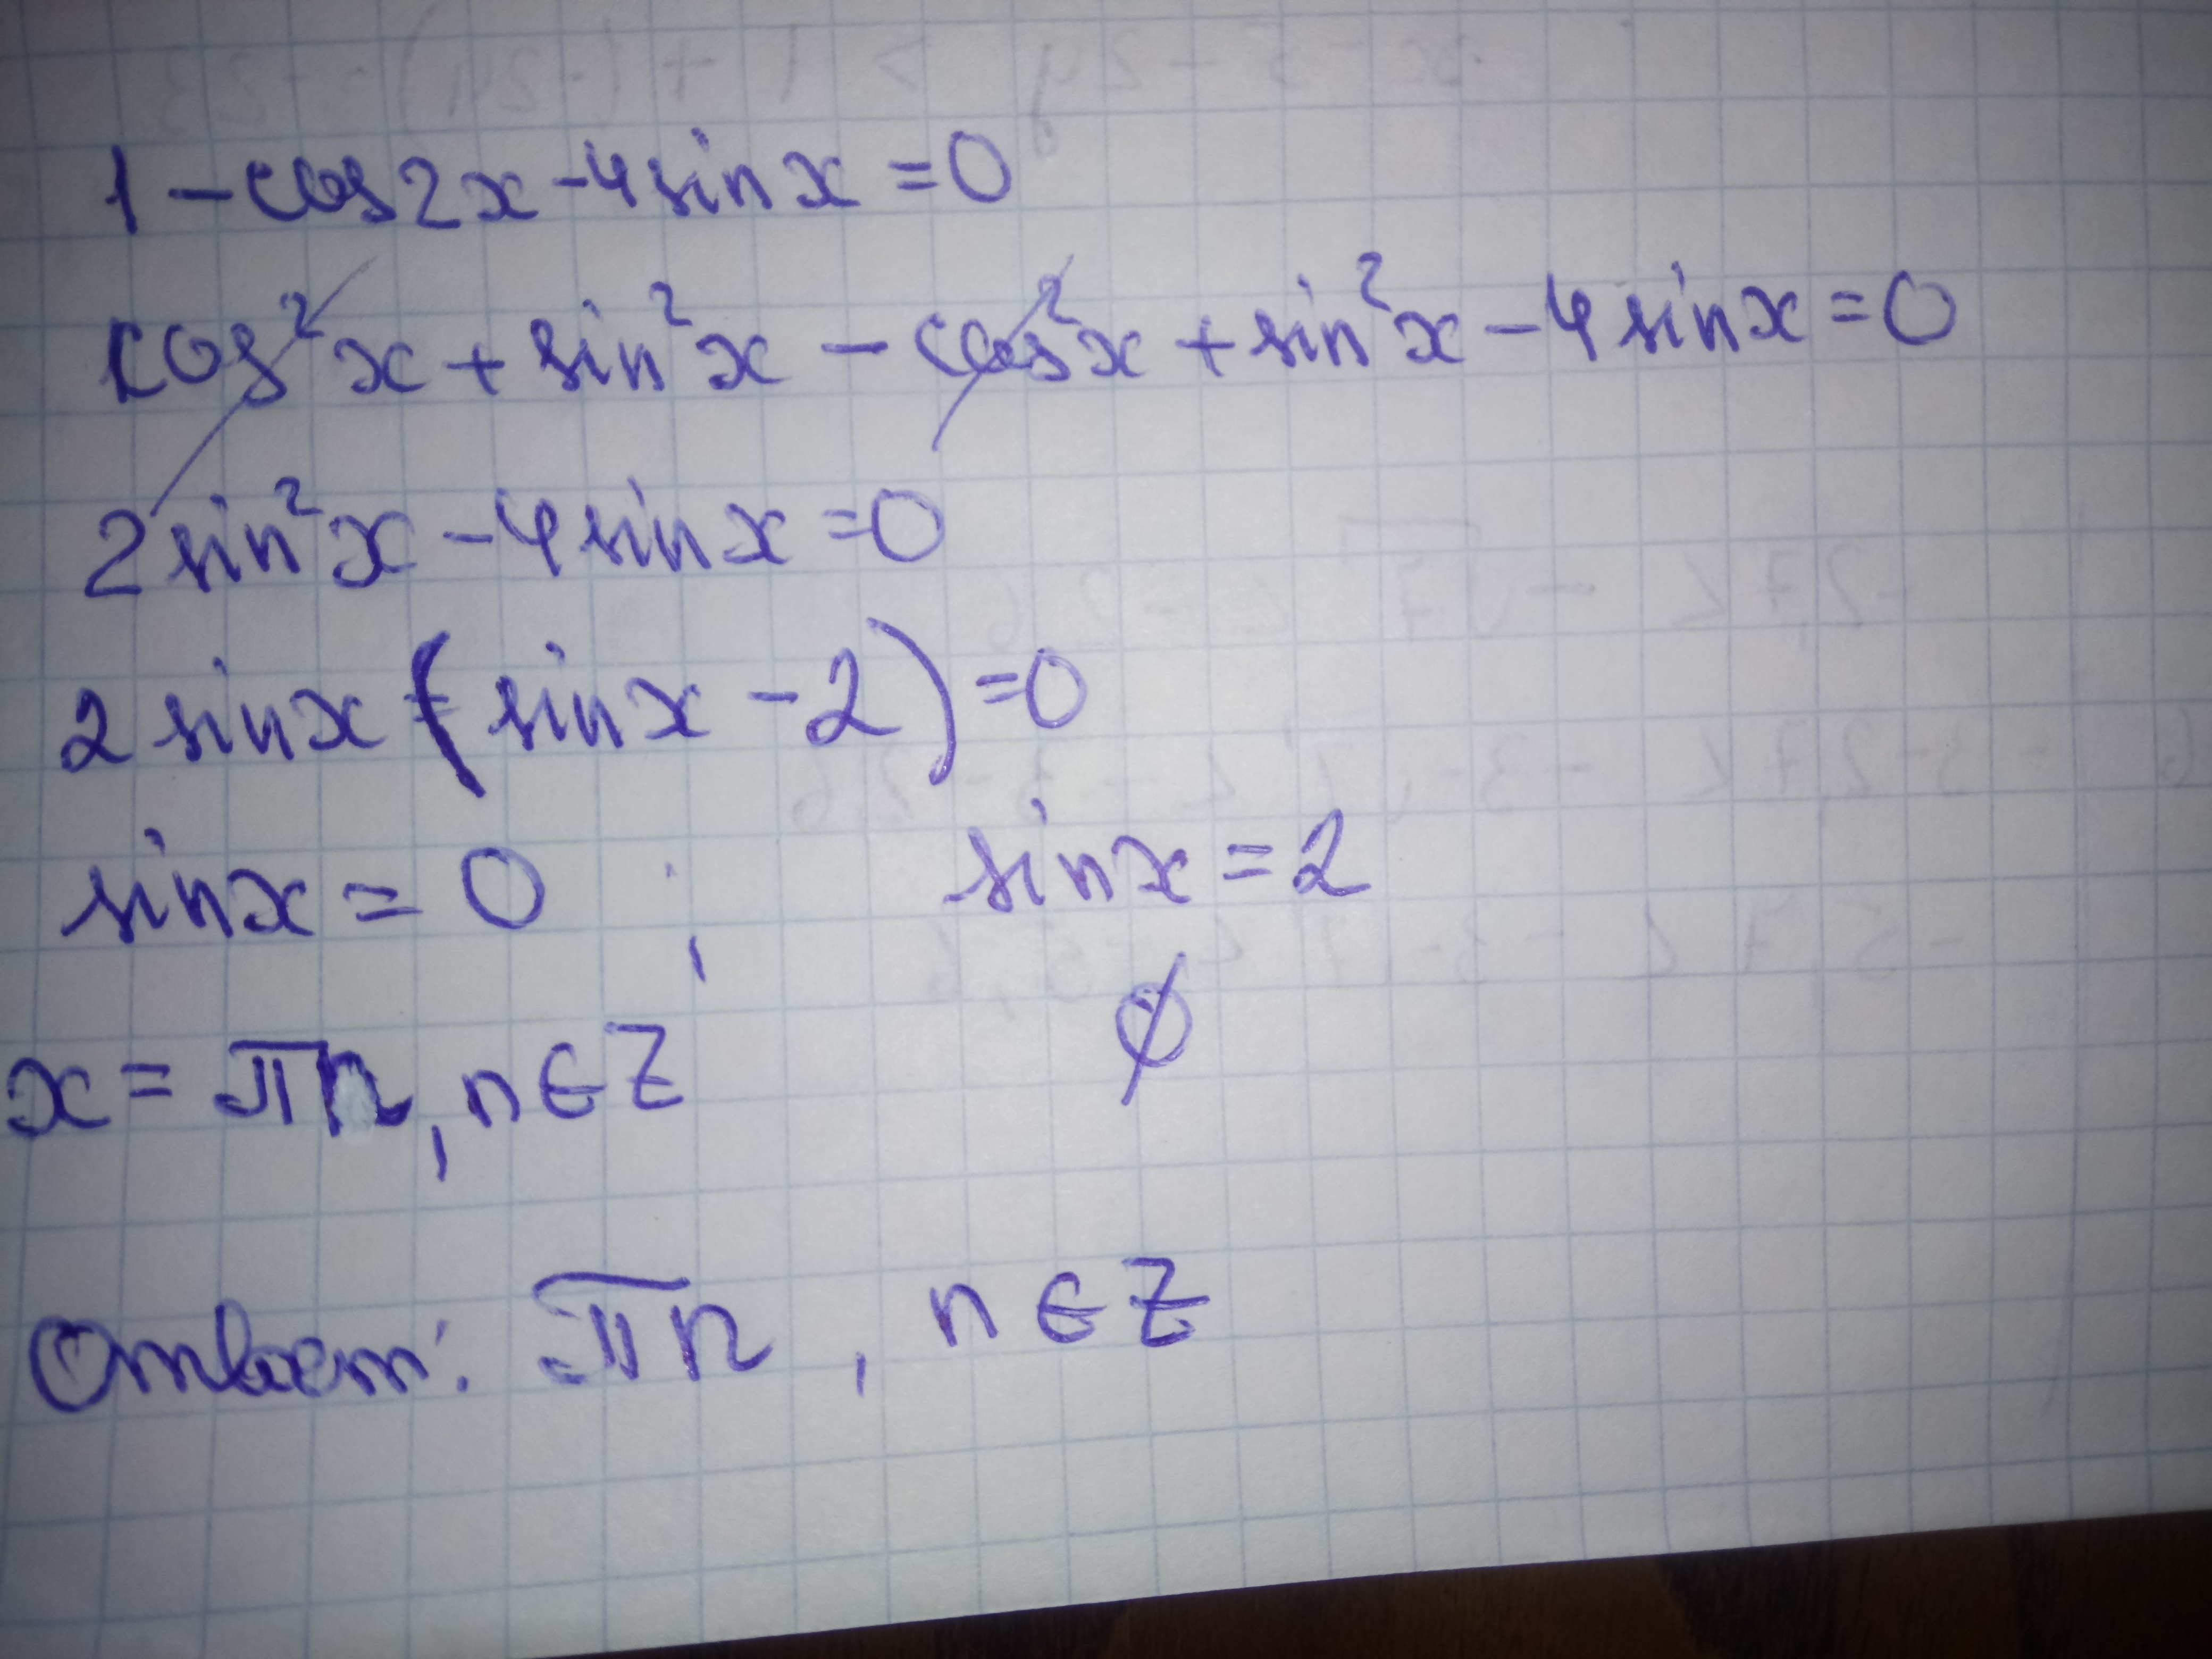 1 - cos2x - 4sinx = 0
cos²x + sin²x - cos²x + sin²x - 4sinx = 0
2sin²x - 4sinx = 0
2sinx(sinx - 2) = 0
sinx = 0 ; sinx = 2
x = πn, n∈Z ∅
Ответ: πn, n∈Z